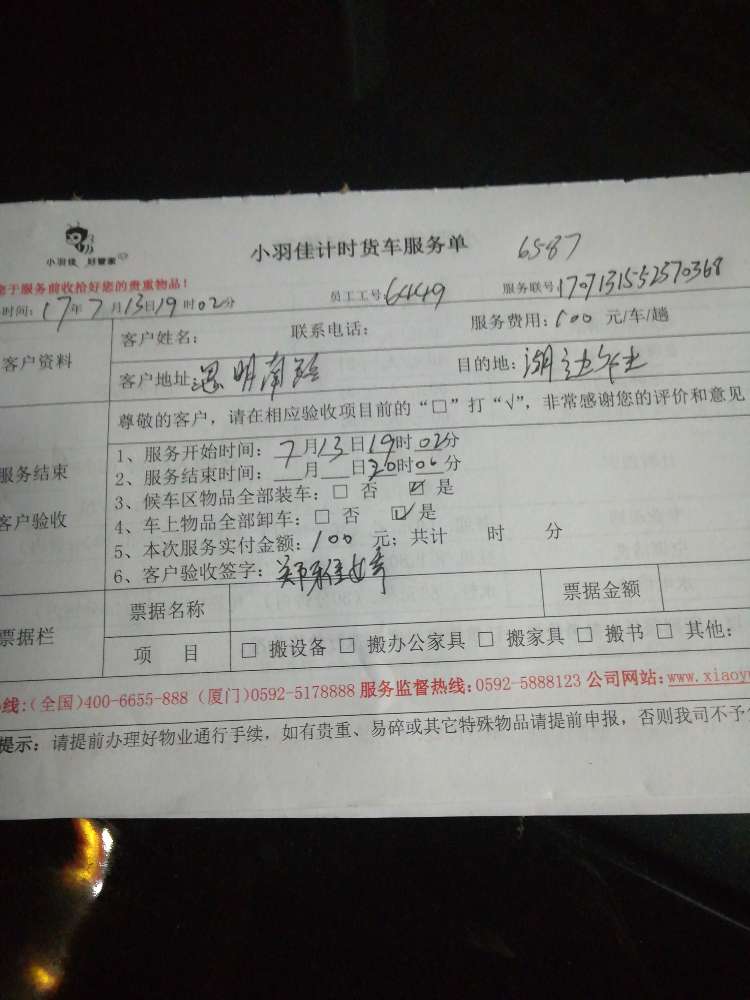 小羽佳 好管家
小羽佳计时货车服务单 6587
于服务前收拾好您的贵重物品!
时间: 17年7月13日19时02分 员工工号 6449 服务联号 1707131552570368
客户资料
客户姓名: 联系电话: 服务费用: 100 元/车/趟
客户地址 思明南路 目的地: 湖边
尊敬的客户，请在相应验收项目前的“□”打“√”，非常感谢您的评价和意见
服务结束
客户验收
1、服务开始时间: 7月13日19时02分
2、服务结束时间: __月__日20时06分
3、候车区物品全部装车: □ 否 ☑ 是
4、车上物品全部卸车: □ 否 ☑ 是
5、本次服务实付金额: 100 元; 共计 时 分
6、客户验收签字:
票据栏
票据名称 票据金额
项 目 □ 搬设备 □ 搬办公家具 □ 搬家具 □ 搬书 □ 其他:
线:(全国)400-6655-888 (厦门)0592-5178888 服务监督热线:0592-5888123 公司网站:www.xiaoy
提示: 请提前办理好物业通行手续，如有贵重、易碎或其它特殊物品请提前申报，否则我司不予